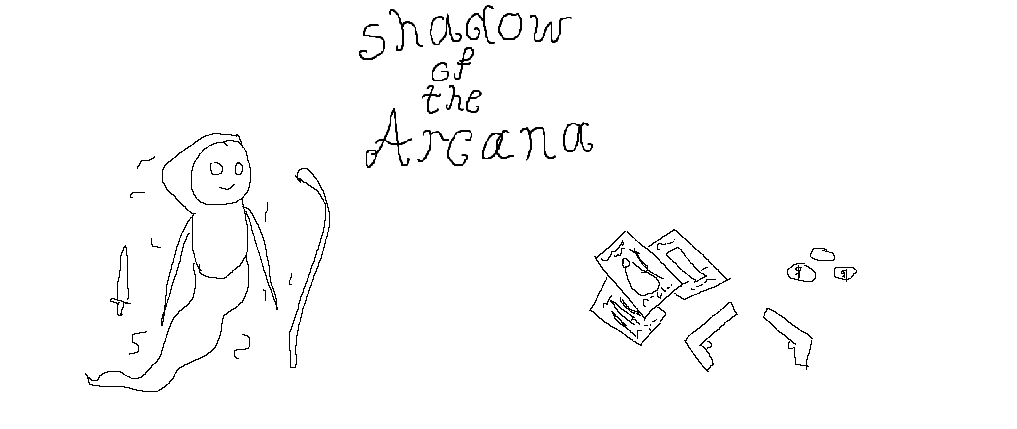 Shadow
of
the
Arcana